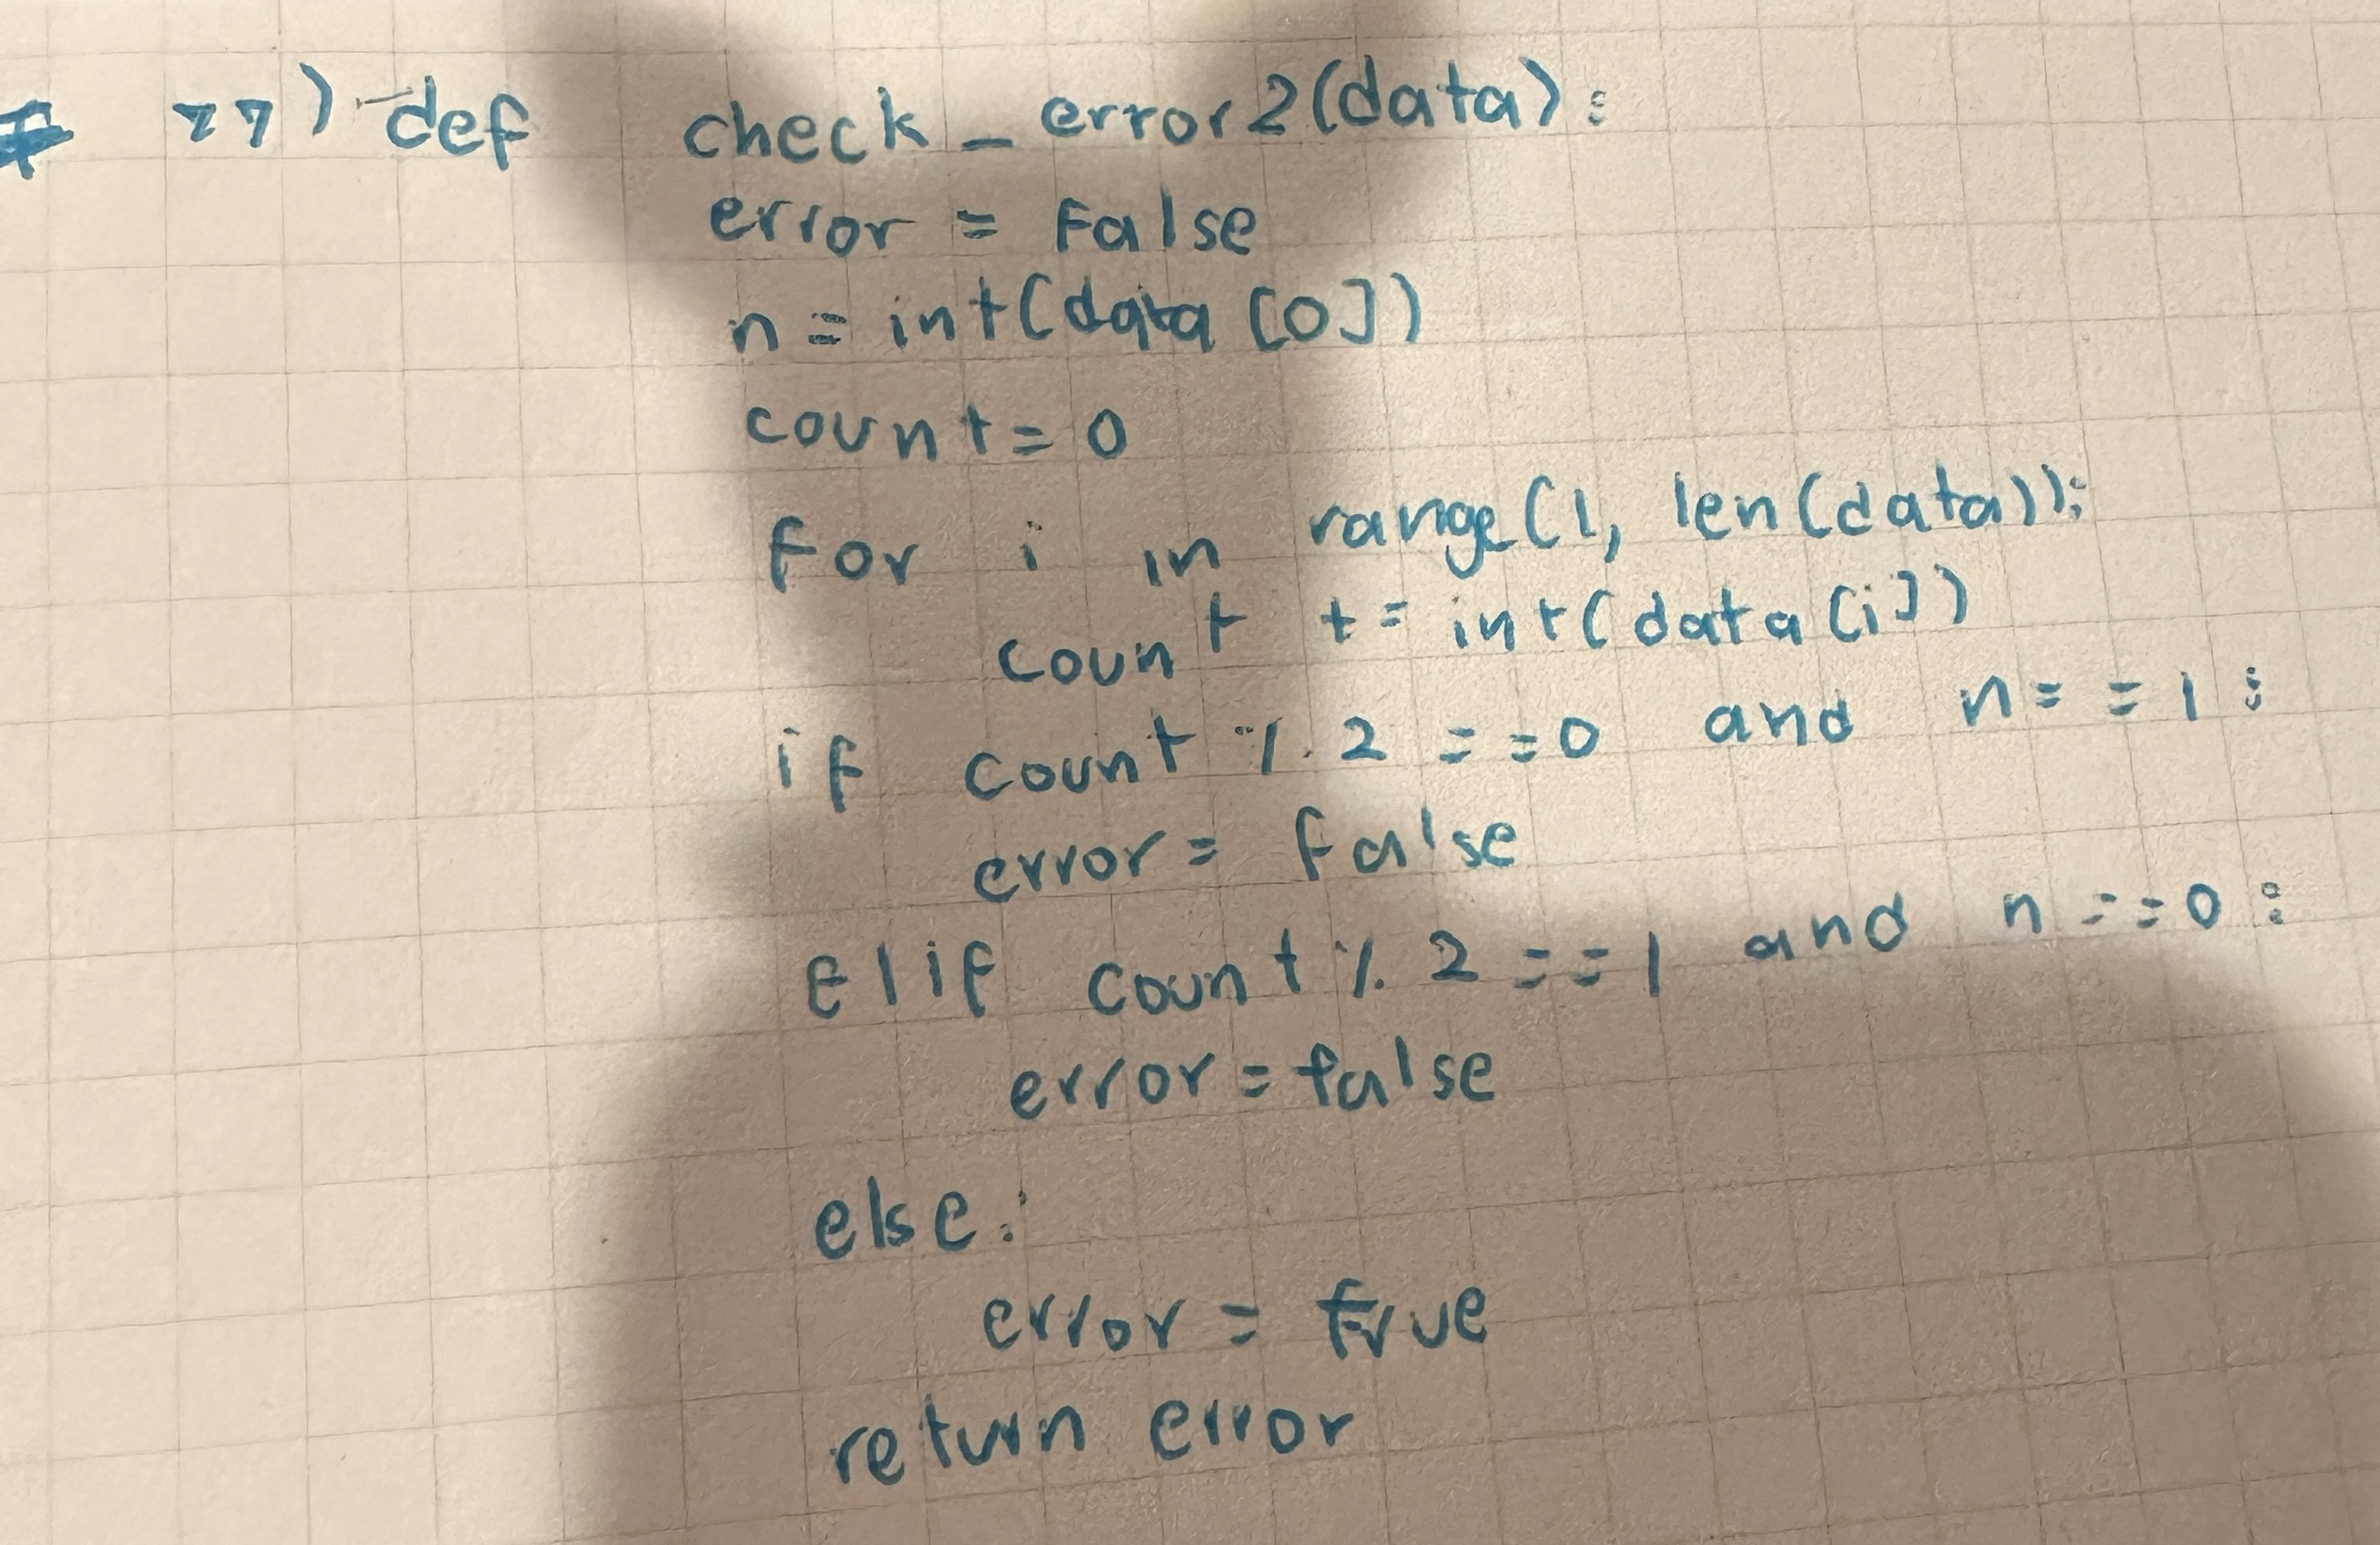 27) def check_error2(data):
error = False
n = int(data[0])
count = 0
for i in range(1, len(data)):
count += int(data[i])
if count % 2 == 0 and n == 1:
error = false
elif count % 2 == 1 and n == 0:
error = false
else:
error = true
return error